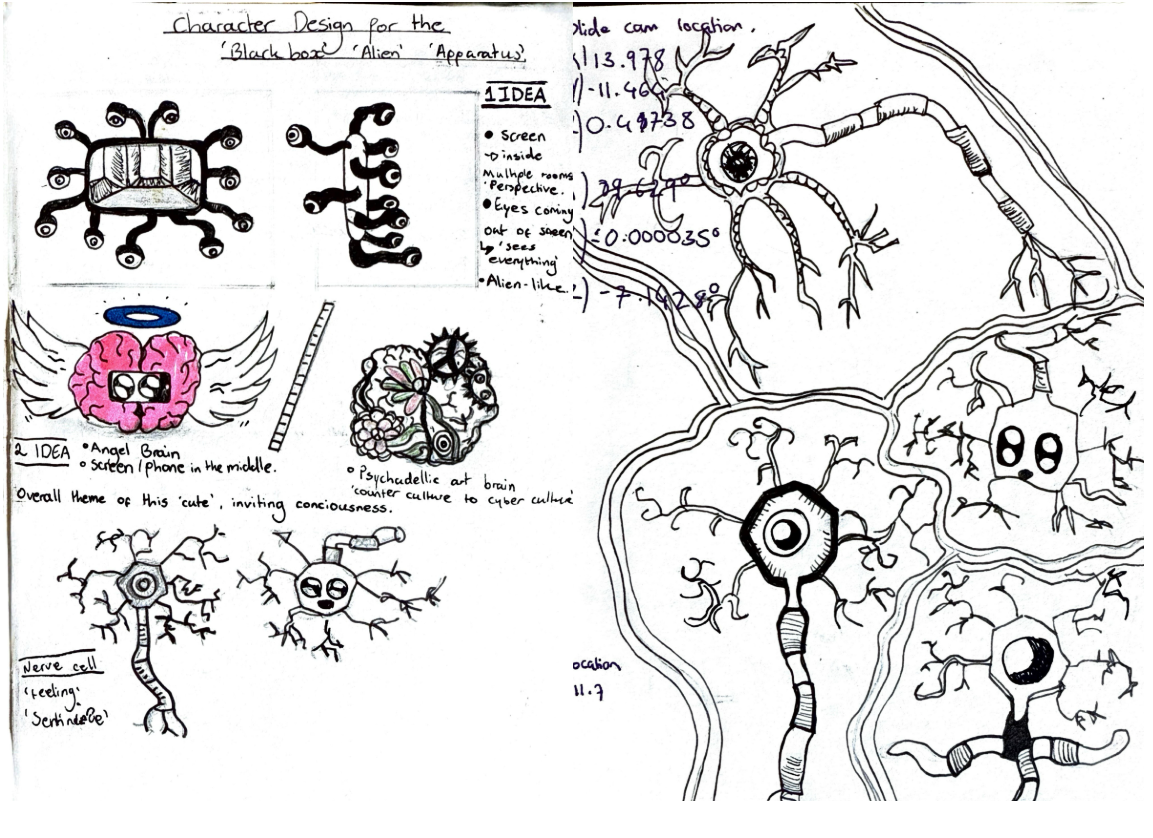 Character Design for the
'Black box' 'Alien' 'Apparatus'
1 IDEA
• Screen
→ inside
Multiple rooms
'Perspective.
• Eyes coming
out of screen
↳ 'sees
everything'
• Alien-like.
2 IDEA
• Angel Brain
• Screen/phone in the middle.
• Psychadellic art brain
'counter culture to cyber culture'
Overall theme of this 'cute', inviting conciousness.
Nerve cell
'feeling'
slide cam location.
13.978
-11.464
0.49738
-0.000035°
-7.1428°
ocation
11.7